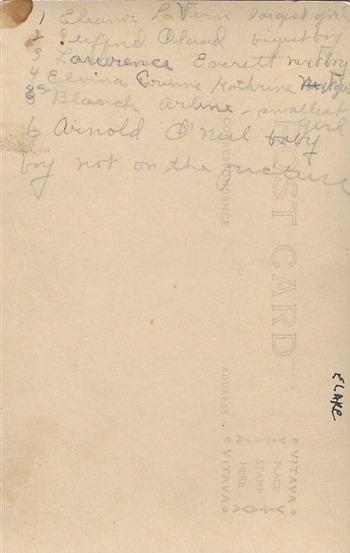 1 Eleanor LaVern largest girl
2 Clifford Oland bigest boy
3 Lawrence Everett next boy
4 Elvina Corinne Kathrine girl
5 Blanch Arline - smallest girl
6 Arnold O'Neil baby
boy not on the picture
POST CARD
CORRESPONDENCE
ADDRESS
VITAVA
PLACE
STAMP
HERE
VITAVA